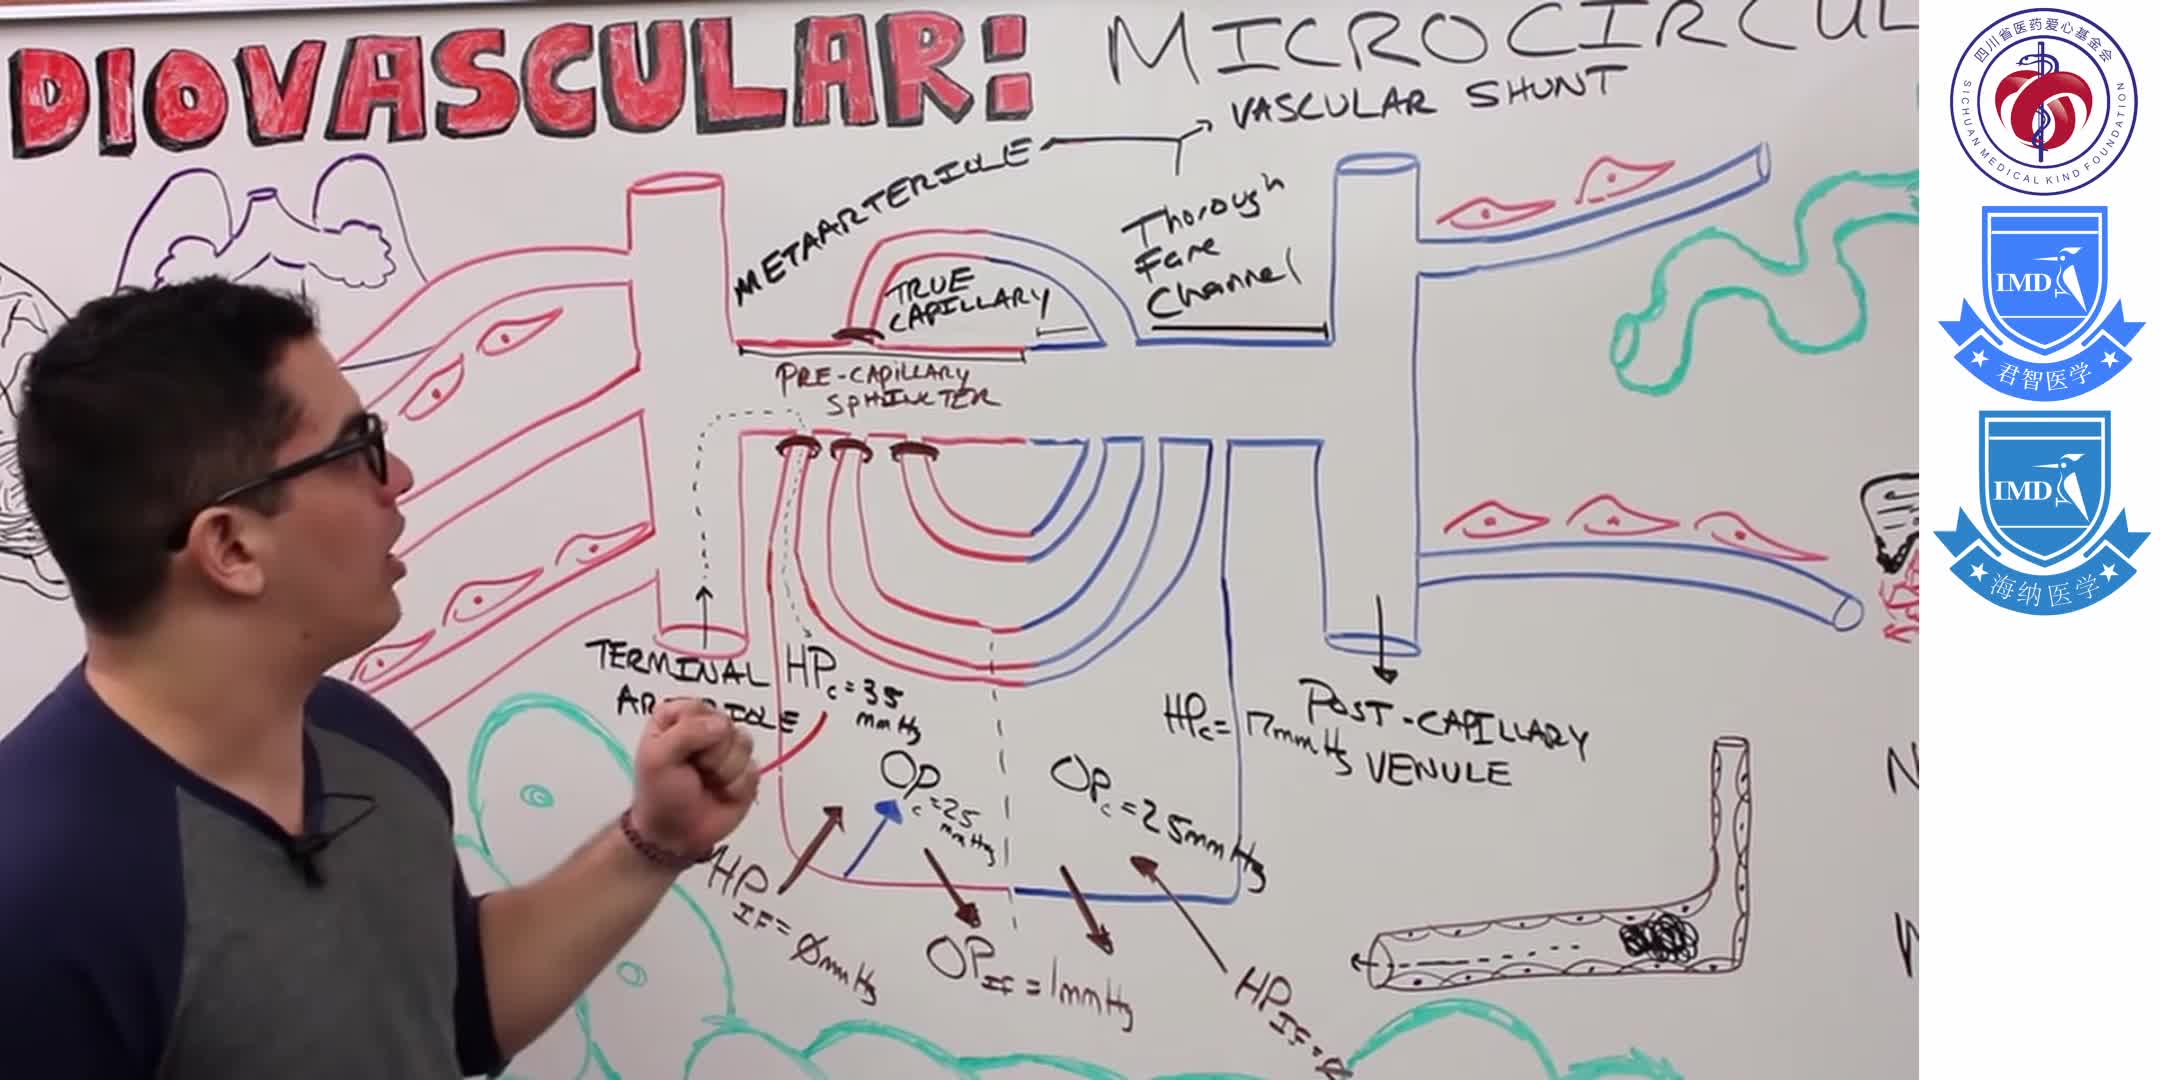 DIOVASCULAR:
MICROCIRCUL
METAARTERIOLE
VASCULAR SHUNT
TRUE
CAPILLARY
Thorough
Fare
Channel
PRE-CAPILLARY
SPHINCTER
TERMINAL
ARTERIOLE
HPc=35
mmHg
OPc=25
mmHg
HPIF=0mmHg
OPIF=1mmHg
OPc=25mmHg
HPc=17mmHg
HPIF=0
POST-CAPILLARY
VENULE
四川省医药爱心基金会
SICHUAN MEDICAL KIND FOUNDATION
IMD
君智医学
IMD
海纳医学